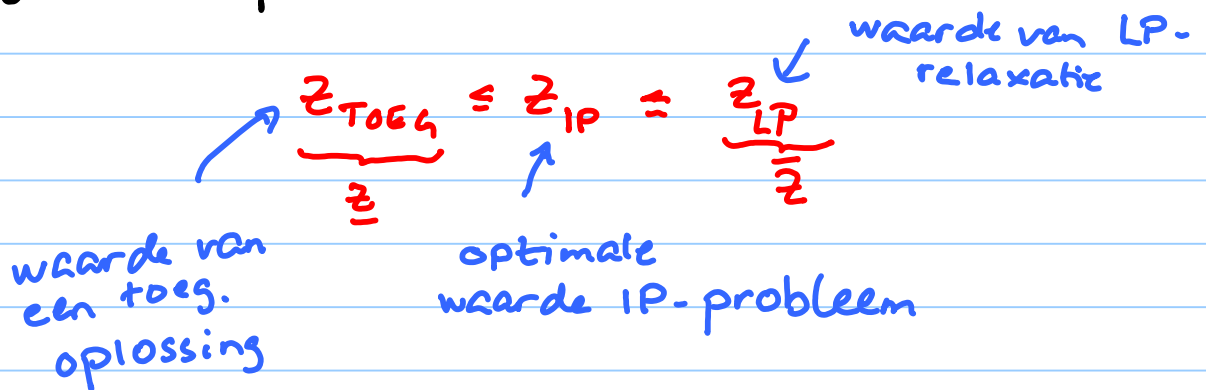 waarde van LP-
relaxatie
z_TOEG ≤ z_IP ≤ z_LP
z̲ z̅
waarde van
een toeg.
oplossing
optimale
waarde IP-probleem